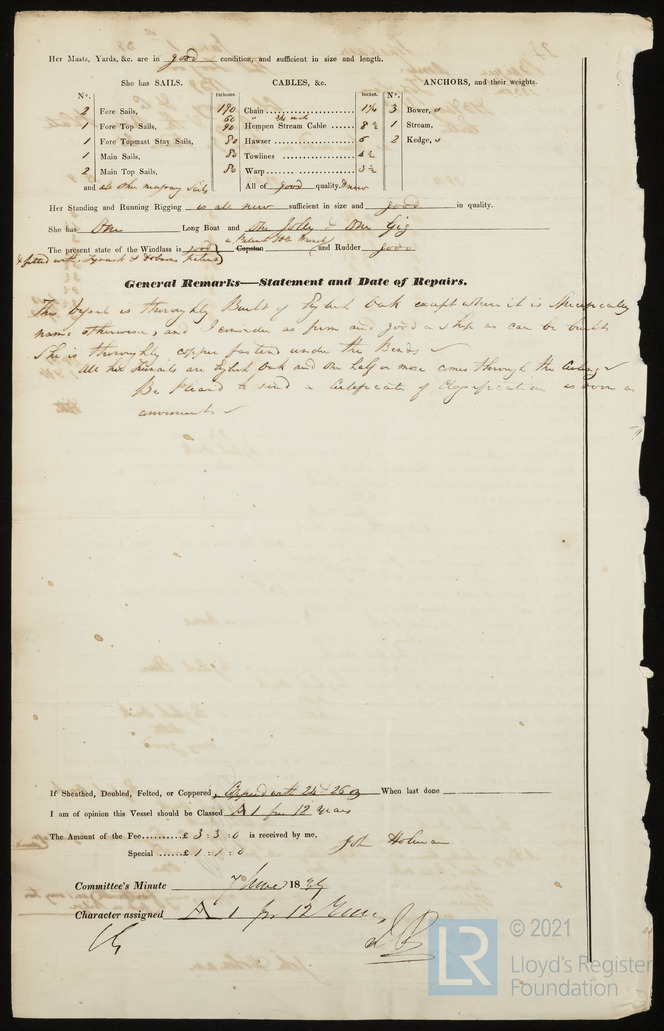 Her Masts, Yards, &c. are in good condition, and sufficient in size and length.
She has SAILS. CABLES, &c. ANCHORS, and their weights.
No. Fathoms. Inches. No.
2 Fore Sails, 190 Chain 3 Bower,
1 Fore Top Sails, 90 Hempen Stream Cable 8 1 Stream,
1 Fore Topmast Stay Sails, 80 Hawser 6 2 Kedge,
1 Main Sails, 80 Towlines
2 Main Top Sails, 80 Warp
and all other necessary Sails All of good quality & new
Her Standing and Running Rigging is all new sufficient in size and good in quality.
She has One Long Boat and One Jolly & One Gig
The present state of the Windlass is good Capstan and Rudder good
& fitted with
General Remarks—Statement and Date of Repairs.
This Vessel is thoroughly Built of English Oak except where it is Specifically
named otherwise, and I consider as firm and good a Ship as can be built
She is thoroughly copper fastend under the Bends
All her Trenails are English Oak and one half or more comes through the Ceiling
Be Pleased to send a Certificate of Classification as soon as
convenient
If Sheathed, Doubled, Felted, or Coppered, Copperd with 24 26 oz When last done
I am of opinion this Vessel should be Classed A 1 for 12 Years
The Amount of the Fee..........£ 3 : 3 : 0 is received by me,
John Holman
Special ......£ 1 : 1 : 0
Committee's Minute 7 June 1839
Character assigned A 1 for 12 Years
© 2021
LR Lloyd's Register
Foundation